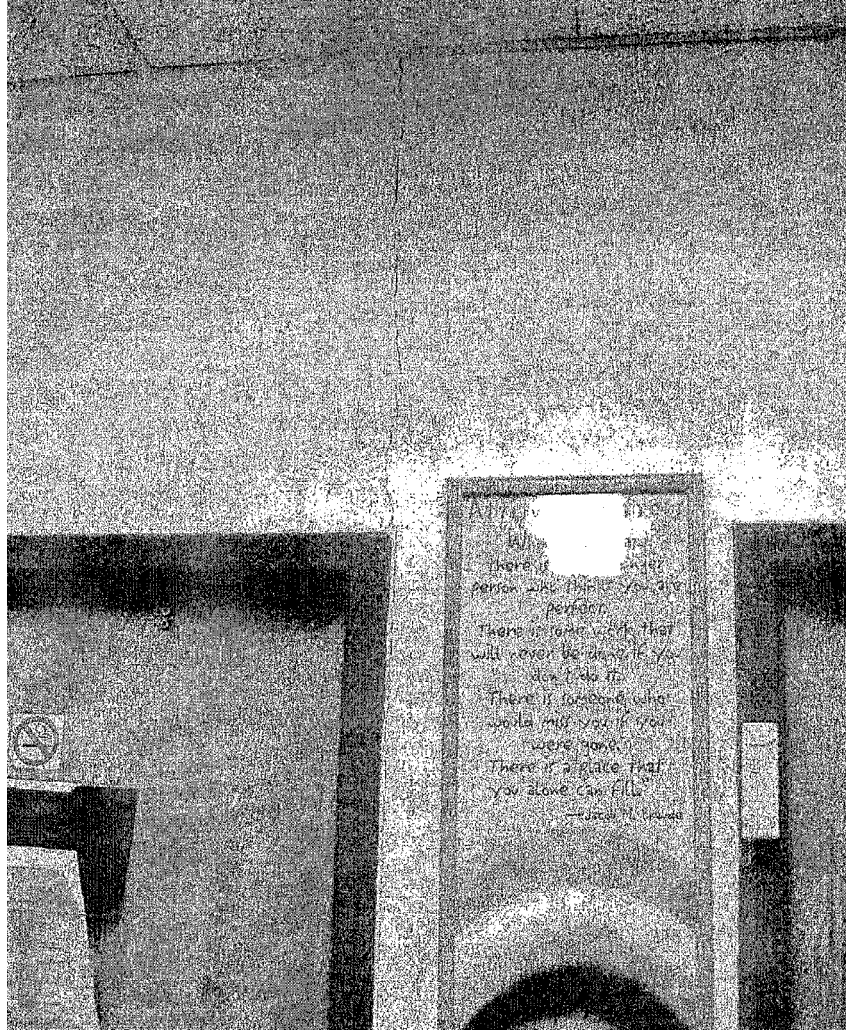 There is
person who thinks you are
perfect.
There is some work that
will never be done if you
don't do it.
There is someone who
would miss you if you
were gone.
There is a place that
you alone can fill."